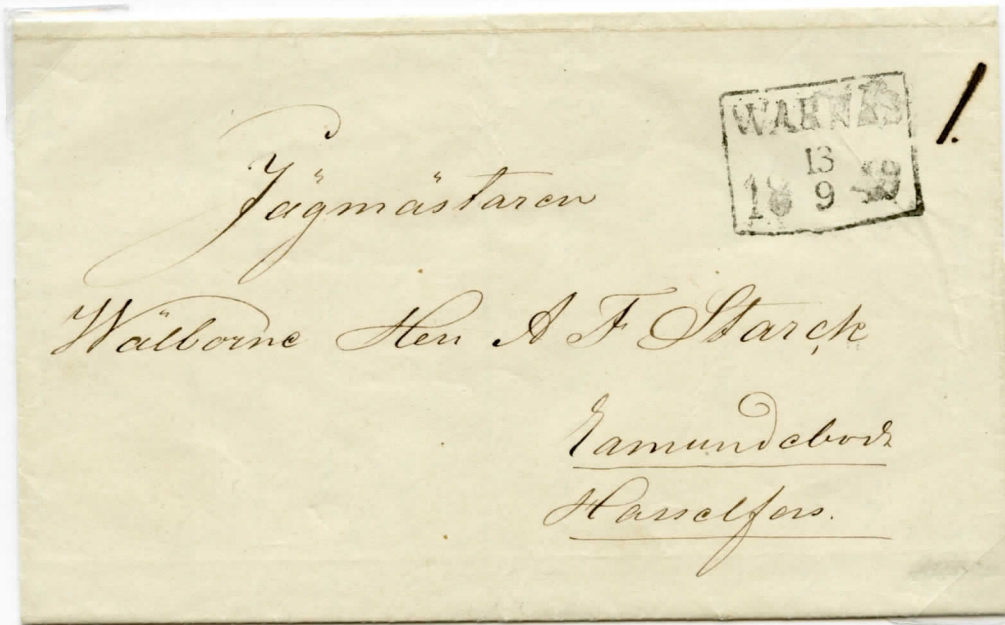 WARNÄS
13
18 9 59
1.
Jägmästaren
Wälborne Herr A F Starck
Ramundeboda
Hasselfors.